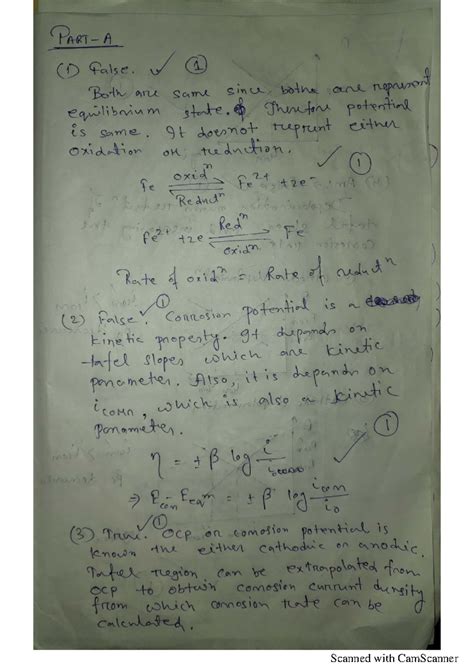 PART-A
(1) False. ✓ ①
Both are same since both are represent
equilibrium state. Therefore potential
is same. It doesnot represent either
oxidation or reduction.
✓ ①
Fe ⇌ Fe²⁺ + 2e⁻
Oxidⁿ
Reductⁿ
Fe²⁺ + 2e ⇌ Fe
Redⁿ
oxidⁿ
Rate of oxidⁿ = Rate of reductⁿ
(2) False. ✓ ① Corrosion potential is a
kinetic property. It depends on
tafel slopes which are kinetic
parameter. Also, it is depends on
i corr, which is also a kinetic
parameter.
✓ ①
η = ± β log i
⇒ E corr - E eqm = ± β log i corr / i₀
(3) True. ✓ ① OCP or corrosion potential is
known the either cathodic or anodic.
Tafel region can be extrapolated from
OCP to obtain corrosion current density
from which corrosion rate can be
calculated.
Scanned with CamScanner